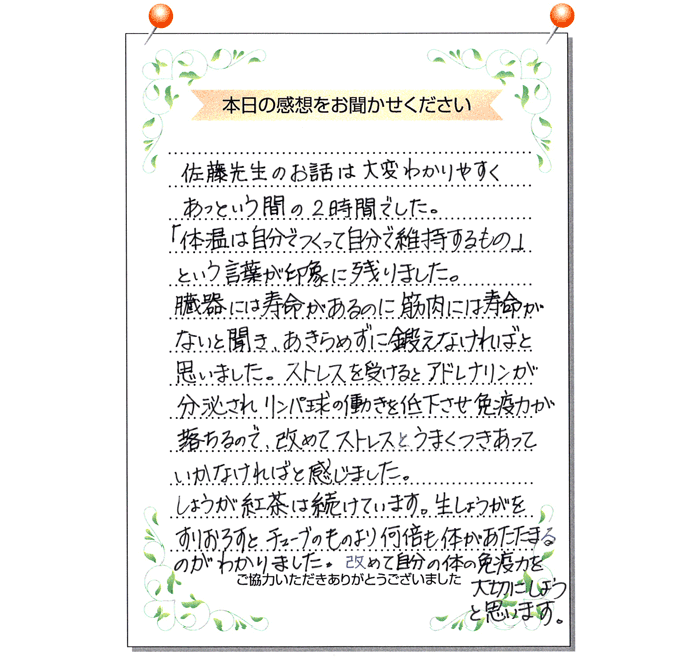 本日の感想をお聞かせください
佐藤先生のお話は大変わかりやすく
あっという間の2時間でした。
「体温は自分でつくって自分で維持するもの」
という言葉が印象に残りました。
臓器には寿命があるのに筋肉には寿命が
ないと聞き、あきらめずに鍛えなければと
思いました。ストレスを受けるとアドレナリンが
分泌されリンパ球の働きを低下させ免疫力が
落ちるので、改めてストレスとうまくつきあって
いかなければと感じました。
しょうが紅茶は続けています。生しょうがを
すりおろすとチューブのものより何倍も体があたたまる
のがわかりました。改めて自分の体の免疫力を
ご協力いただきありがとうございました
大切にしよう
と思います。